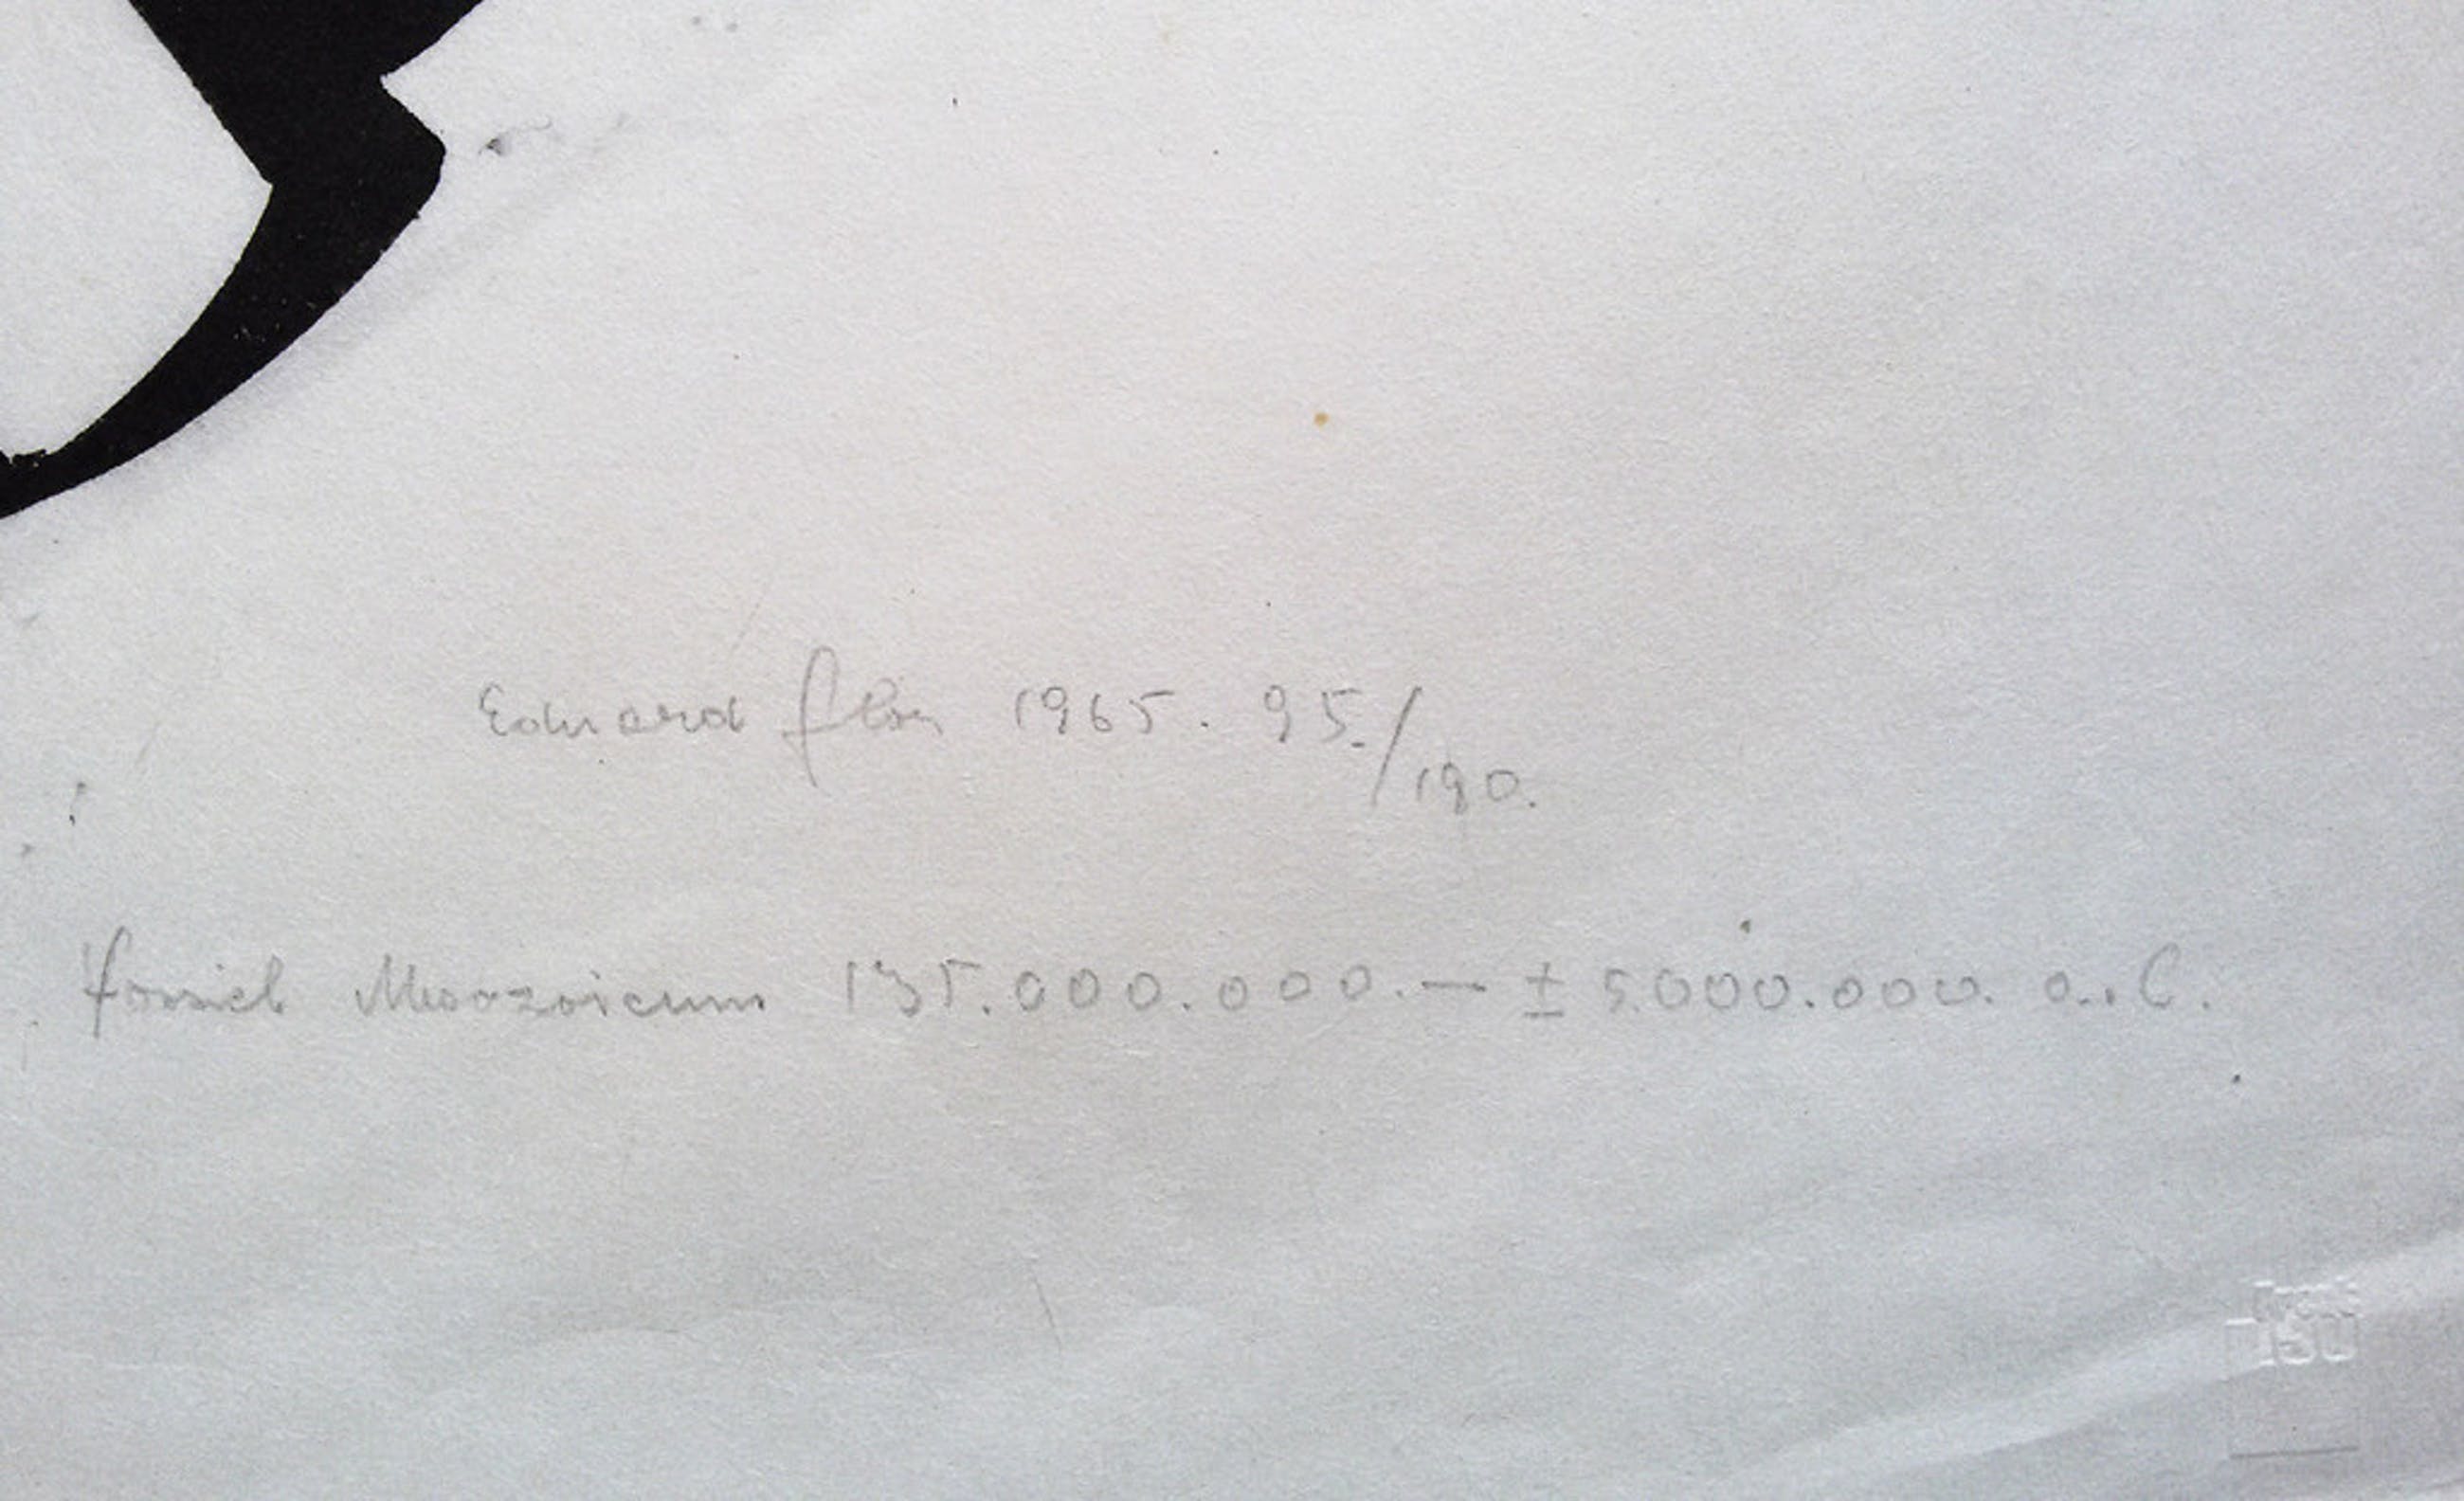 Eduard Flor 1965. 95./190.
fossiel Mesozoicum 135.000.000. — ± 5.000.000. a.C.